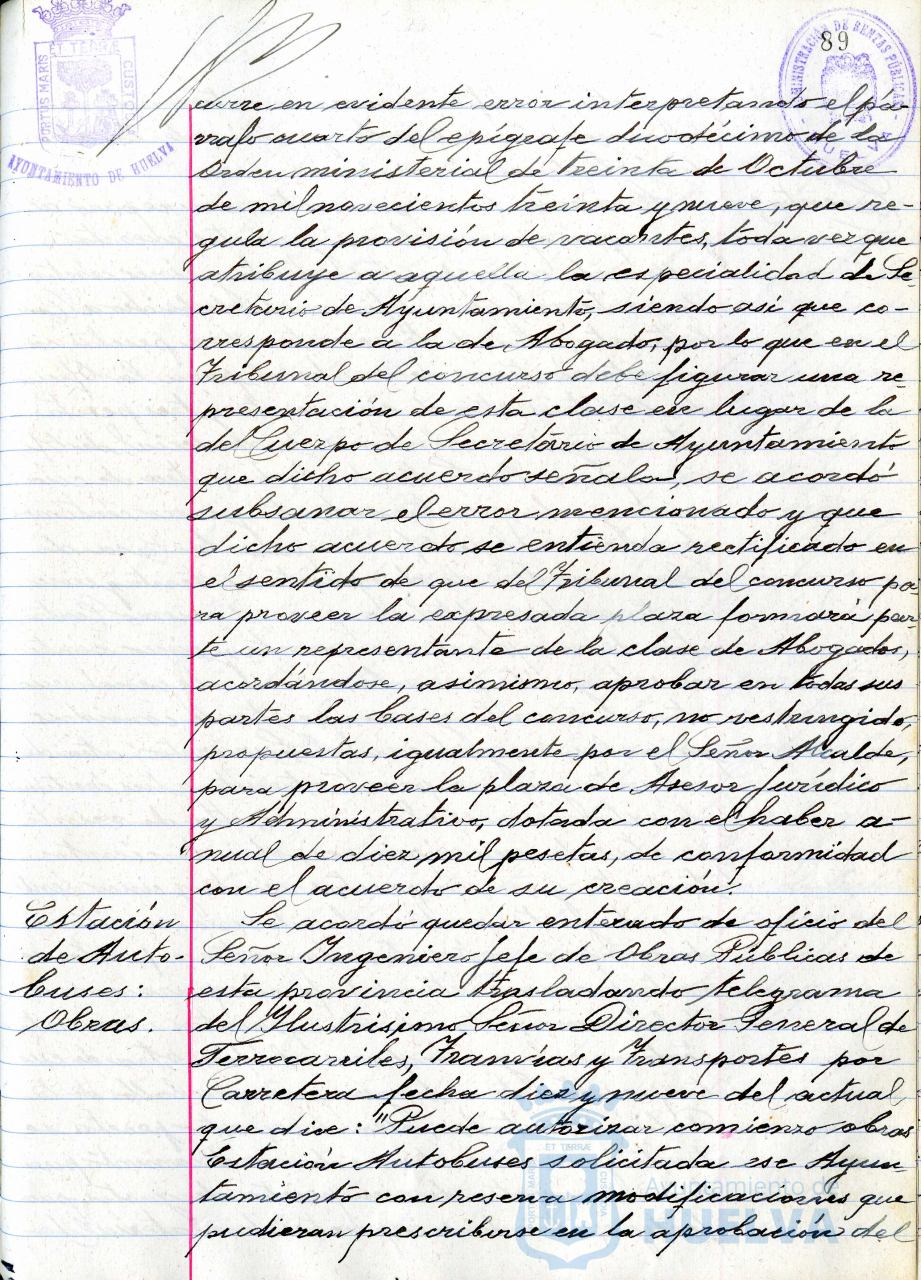 89
PORTUS MARIS ET TERRÆ CUSTODIA
AYUNTAMIENTO DE HUELVA
ADMINISTRACION DE RENTAS PUBLICAS
HUELVA
curre en evidente error interpretando el pá-
rrafo cuarto del epígrafe duodécimo de la
Orden ministerial de treinta de Octubre
de mil novecientos treinta y nueve, que re-
gula la provisión de vacantes, toda vez que
atribuye a aquella la especialidad de Se-
cretario de Ayuntamiento, siendo así que co-
rresponde a la de Abogado, por lo que en el
Tribunal del concurso debe figurar una re-
presentación de esta clase en lugar de la
del Cuerpo de Secretario de Ayuntamiento
que dicho acuerdo señala, se acordó
subsanar el error mencionado y que
dicho acuerdo se entienda rectificado en
el sentido de que del Tribunal del concurso pa-
ra proveer la expresada plaza formará par-
te un representante de la clase de Abogados,
acordándose, asimismo, aprobar en todas sus
partes las bases del concurso, no restringido,
propuestas, igualmente por el Señor Alcalde,
para proveer la plaza de Asesor Jurídico
y Administrativo, dotada con el haber a-
nual de diez mil pesetas, de conformidad
con el acuerdo de su creación.
Estación
de Auto-
buses:
Obras.
Se acordó quedar enterado de oficio del
Señor Ingeniero Jefe de Obras Públicas de
esta provincia trasladando telegrama
del Ilustrísimo Señor Director General de
Ferrocarriles, Tranvías y Transportes por
Carretera fecha diez y nueve del actual
que dice: "Puede autorizar comienzo obras
Estación Autobuses solicitada ese Ayun-
tamiento con reserva modificaciones que
pudieran prescribirse en la aprobación del
Ayuntamiento de
HUELVA